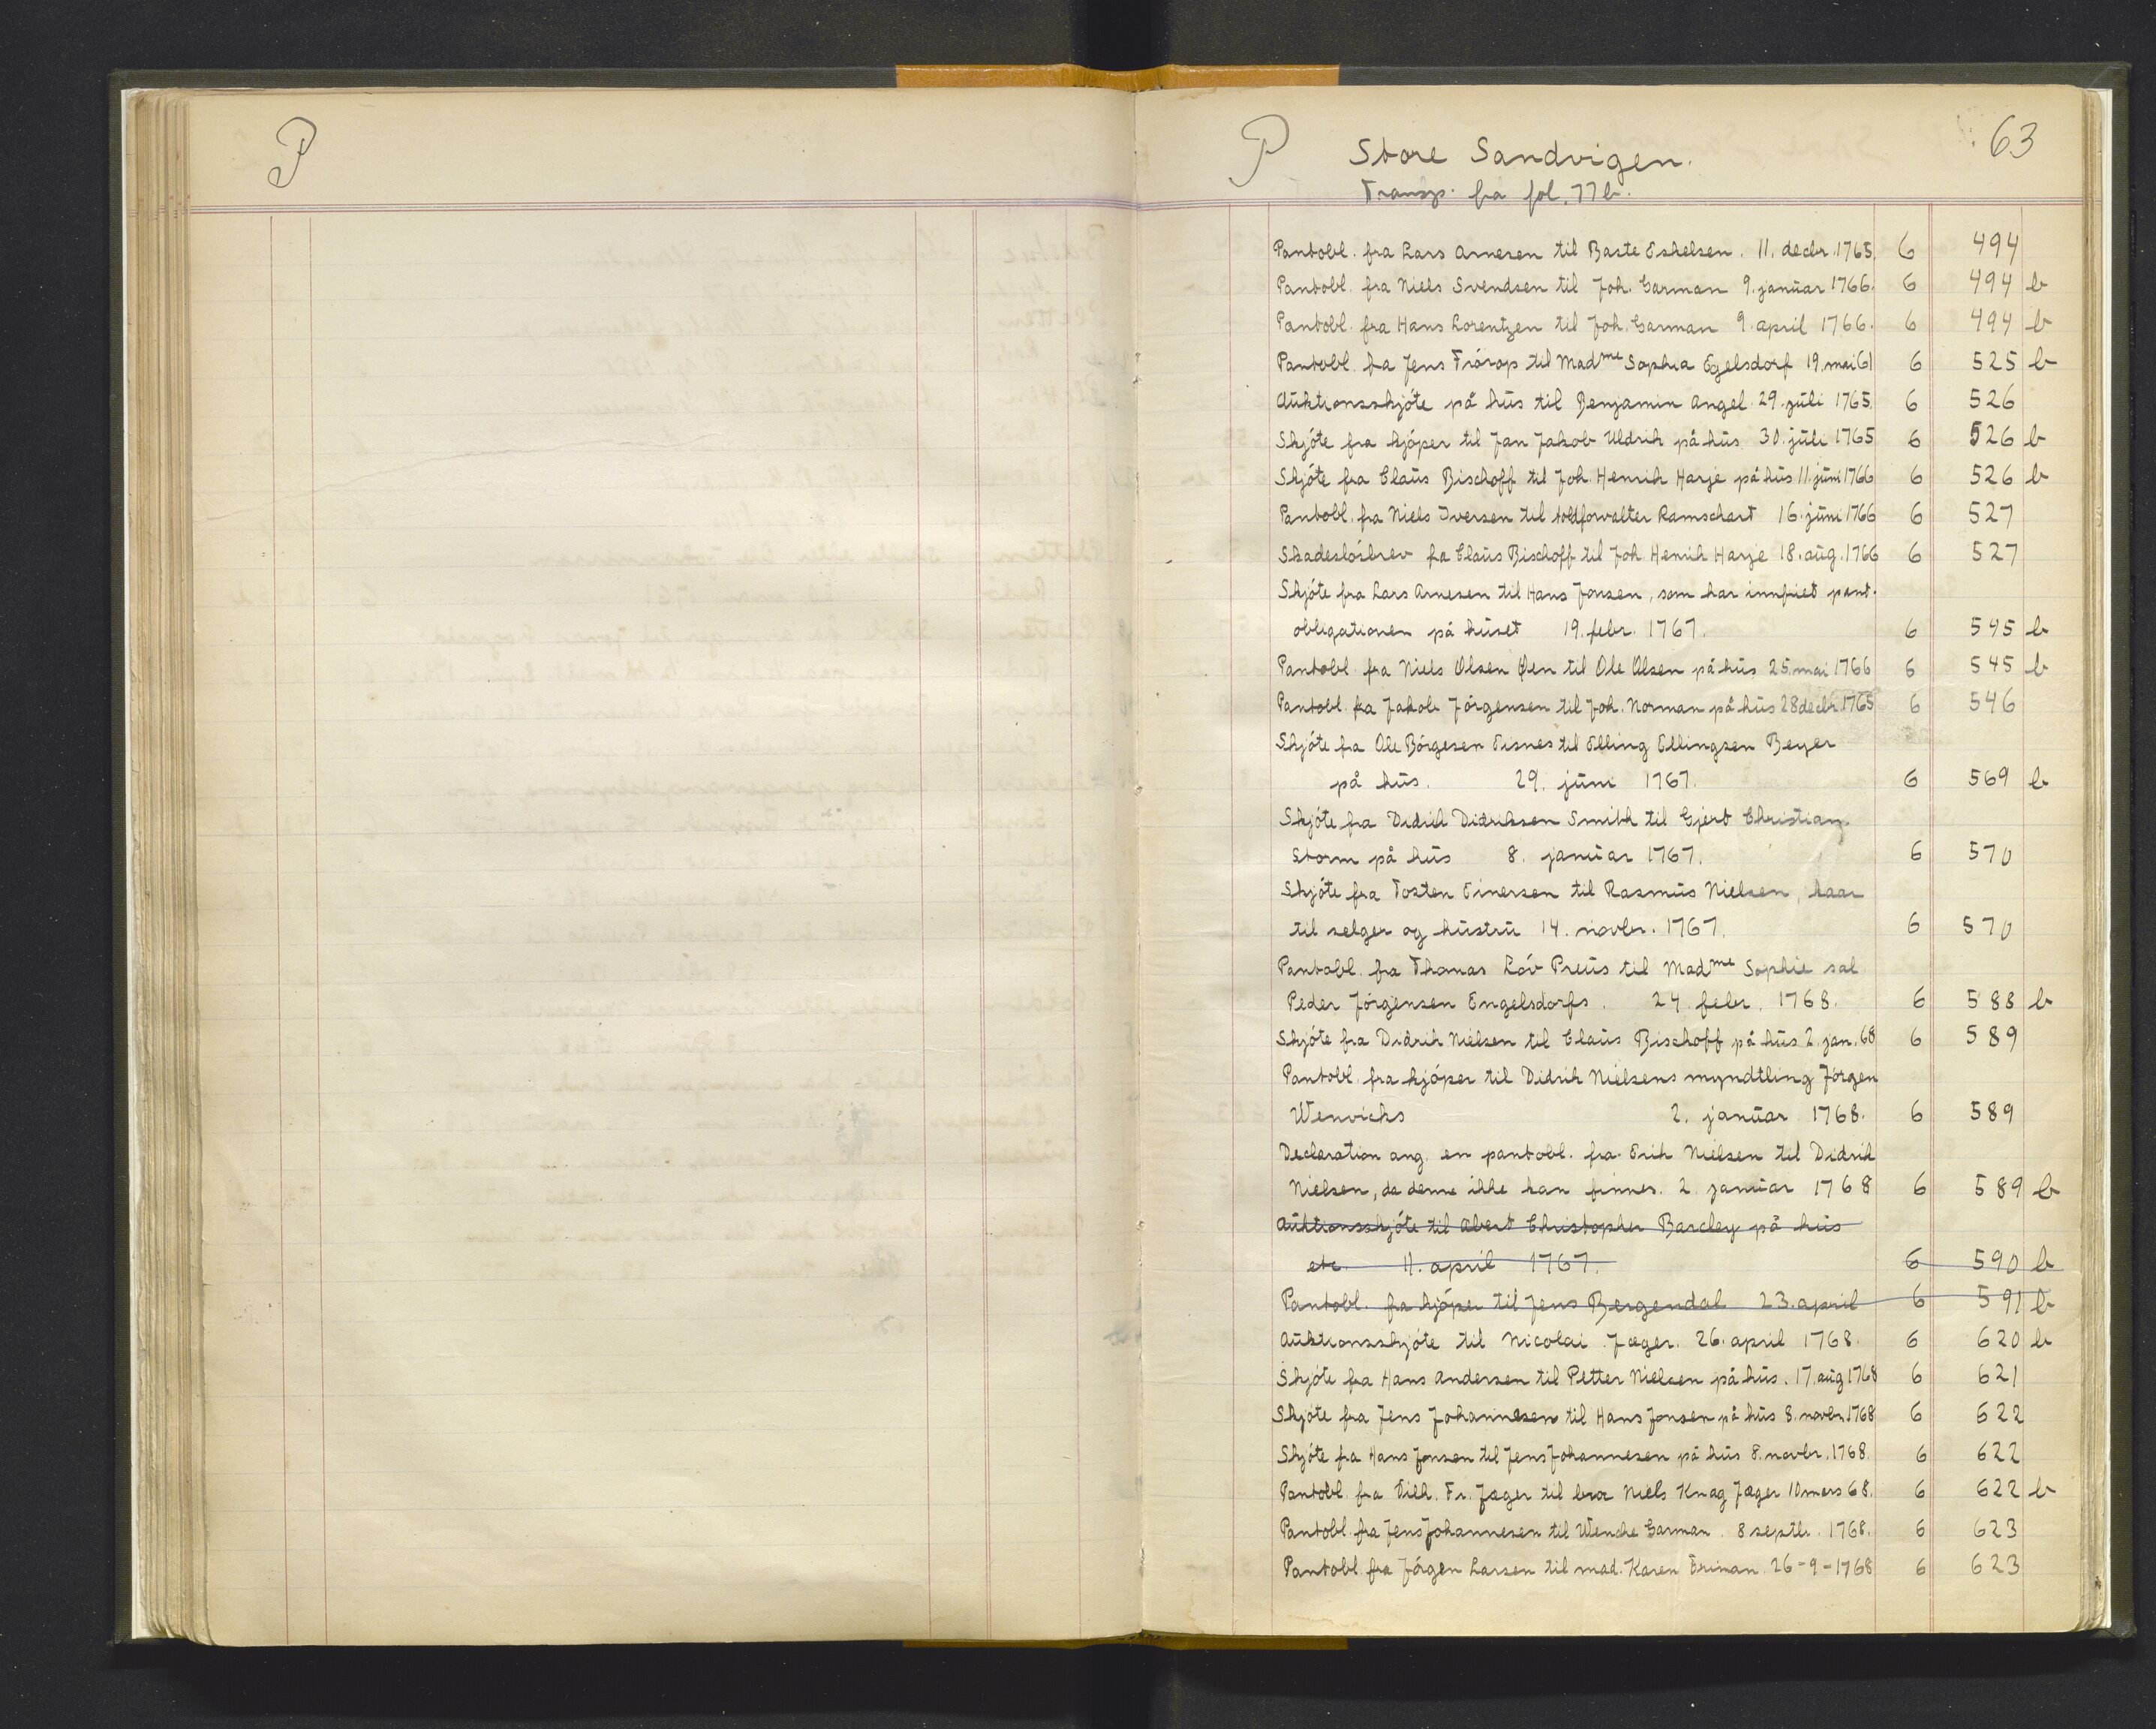 P
P Store Sandvigen. 63
Transp. fra fol. 77 b.
Pantobl. fra Lars Arnesen til Baste Eskelsen. 11. decbr. 1765. 6 494
Pantobl. fra Niels Svendsen til Joh. Garman 9. januar 1766. 6 494 b
Pantobl. fra Hans Lorentzen til Joh. Garman 9. april 1766. 6 494 b
Pantobl. fra Jens Frörop til Madme Sophia Egelsdorf 19. mai 61 6 525 b
Auktionsskjöte på hus til Benjamin Angel 29. juli 1765. 6 526
Skjöte fra kjöper til Jan Jakob Uldrik på hus 30. juli 1765 6 526 b
Skjöte fra Claus Bischoff til Joh. Henrik Harje på hus 11. juni 1766 6 526 b
Pantobl. fra Niels Iversen til toldforvalter Ramschart 16. juni 1766 6 527
Skadeslösbrev fra Claus Bischoff til Joh. Henrik Harje 18. aug. 1766 6 527
Skjöte fra Lars Arnesen til Hans Jonsen, som har innfriet pant-
obligationen på huset 19. febr. 1767. 6 545 b
Pantobl. fra Niels Olsen Øen til Ole Olsen på hus 25. mai 1766 6 545 b
Pantobl. fra Jakob Jörgensen til Joh. Norman på hus 28 decbr. 1765 6 546
Skjöte fra Ole Börgesen Eisnes til Elling Ellingsen Beyer
på hus. 29. juni 1767. 6 569 b
Skjöte fra Didrik Didriksen Smith til Gjert Christian
Storm på hus 8. januar 1767. 6 570
Skjöte fra Tosten Einersen til Rasmus Nielsen, kaar
til selger og hustru 14. novbr. 1767. 6 570
Pantobl. fra Thomas Löv Preus til Madme Sophie sal.
Peder Jörgensen Engelsdorfs. 24. febr. 1768. 6 588 b
Skjöte fra Didrik Nielsen til Claus Bischoff på hus 2. jan. 68 6 589
Pantobl. fra kjöper til Didrik Nielsens myndtling Jörgen
Wenvicks 2. januar 1768. 6 589
Declaration ang. en pantobl. fra Erik Nielsen til Didrik
Nielsen, da denne ikke kan finnes. 2. januar 1768 6 589 b
Auktionsskjöte til Abert Christopher Barcley på hus
etc. 11. april 1767. 6 590 b
Pantobl. fra kjöper til Jens Bergendal 23. april 6 591 b
Auktionsskjöte til Nicolai Jæger. 26. april 1768. 6 620 b
Skjöte fra Hans Andersen til Petter Nielsen på hus. 17. aug 1768 6 621
Skjöte fra Jens Johannesen til Hans Jonsen på hus 8. novbr. 1768 6 622
Skjöte fra Hans Jonsen til Jens Johannesen på hus 8. novbr. 1768. 6 622
Pantobl. fra Vilh. Fr. Jæger til bror Niels Knag Jæger 10 mars 68. 6 622 b
Pantobl. fra Jens Johannesen til Wenche Garman. 8 septbr. 1768. 6 623
Pantobl. fra Jörgen Larsen til mad. Karen Friman 26-9-1768 6 623